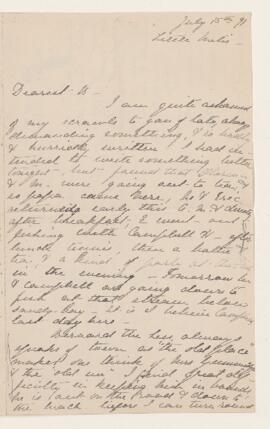 July 15th 91
Little Metis
Dearest B -
I am quite ashamed
of my scrawls to you of late, always
demanding something, & so badly
& hurriedly written I had in-
tended to write something better
tonight - but found that
& M. were going out to tea,
so papa came here, he &
returning early this
after breakfast. I went out
fishing with Campbell
lunch tennis, then a bathe
tea, & a kind of
in the evening - Tomorrow
& Campbell are going down to
fish at that stream below
Sandy Bay - it is I believe
last day here -
Bernard the Less always
speaks of town as the "old place"
makes one think of Mrs Gummidge
& the "old un" I find great
difficulty in keeping him in bounds
he is out on the road & down to
the beach before I can turn round